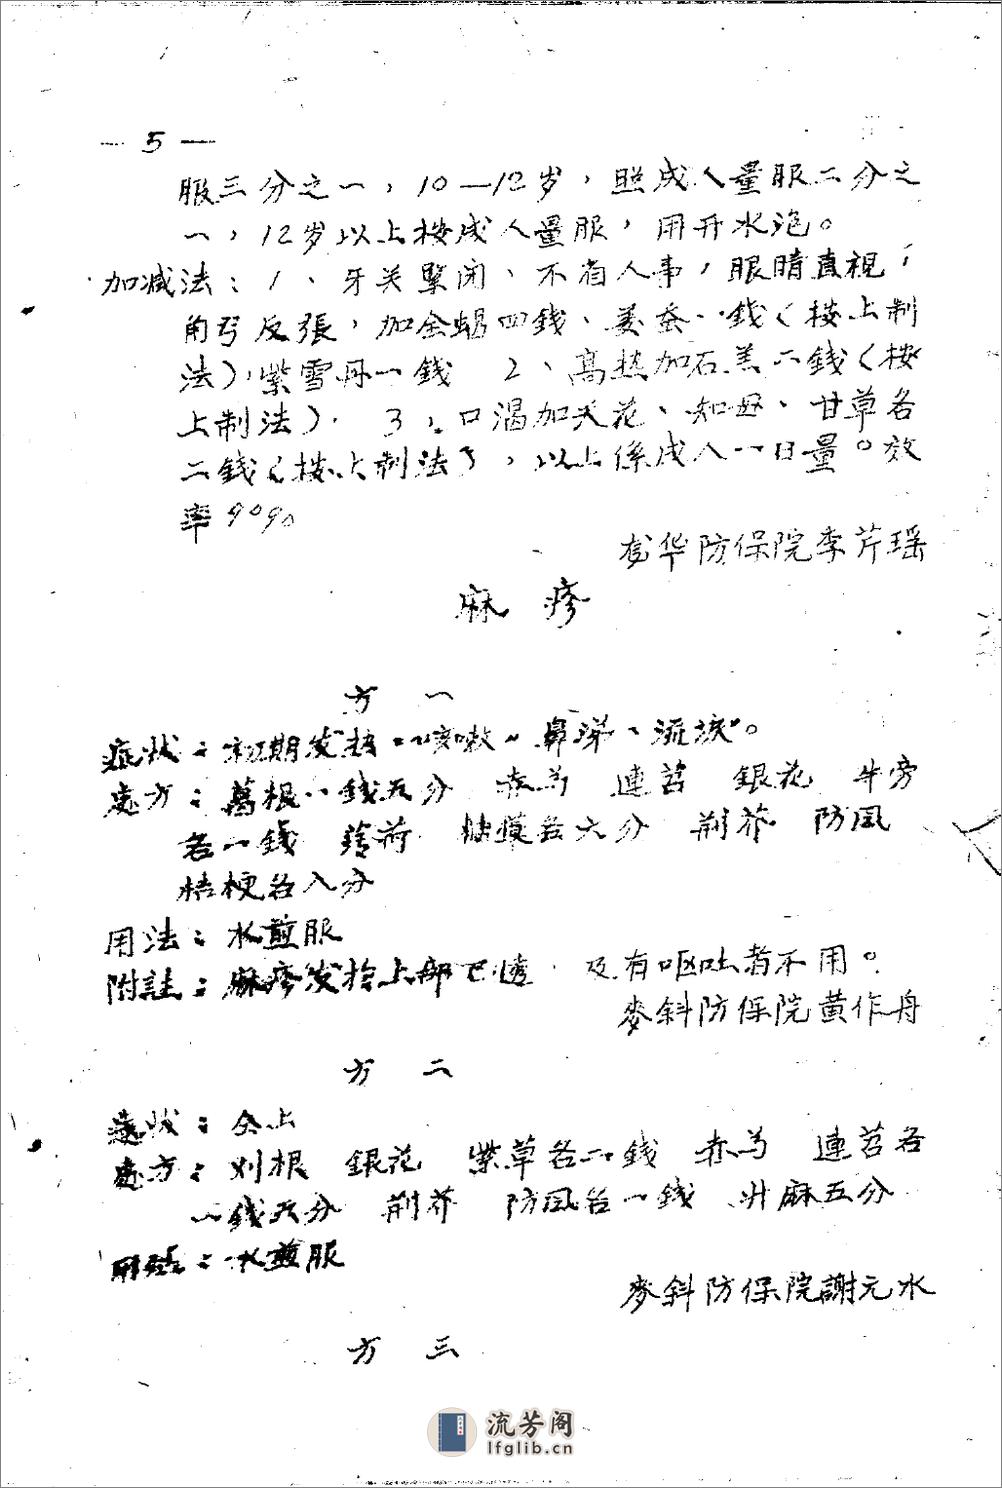 — 5 —
服三分之一，10—12岁，照成人量服二分之
一，12岁以上按成人量服，用开水泡。
加减法：1、牙关紧闭、不省人事，眼睛直视，
角弓反張，加全蝎四錢、姜蚕一錢（按上制
法），紫雪丹一錢 2、高热加石羔二錢（按
上制法）. 3、口渴加天花、知母、甘草各
二錢（按上制法），以上係成人一日量。效
率90%
华防保院李芹瑶
麻疹
方一
症状：初期发热、咳嗽、鼻涕、流淚。
处方：葛根一錢五分 赤芍 連召 銀花 牛旁
各一錢 各六分 荆芥 防風
桔梗各八分
用法：水煎服
附註：麻疹发於上部已透，及有呕吐者不用。
麥斜防保院黄作舟
方二
症状：仝上
处方：刈根 銀花 紫草各二錢 赤芍 連召各
一錢五分 荆芥 防風各一錢 升麻五分
用法：水煎服
麥斜防保院謝元水
方三
流芳阁
lfglib.cn